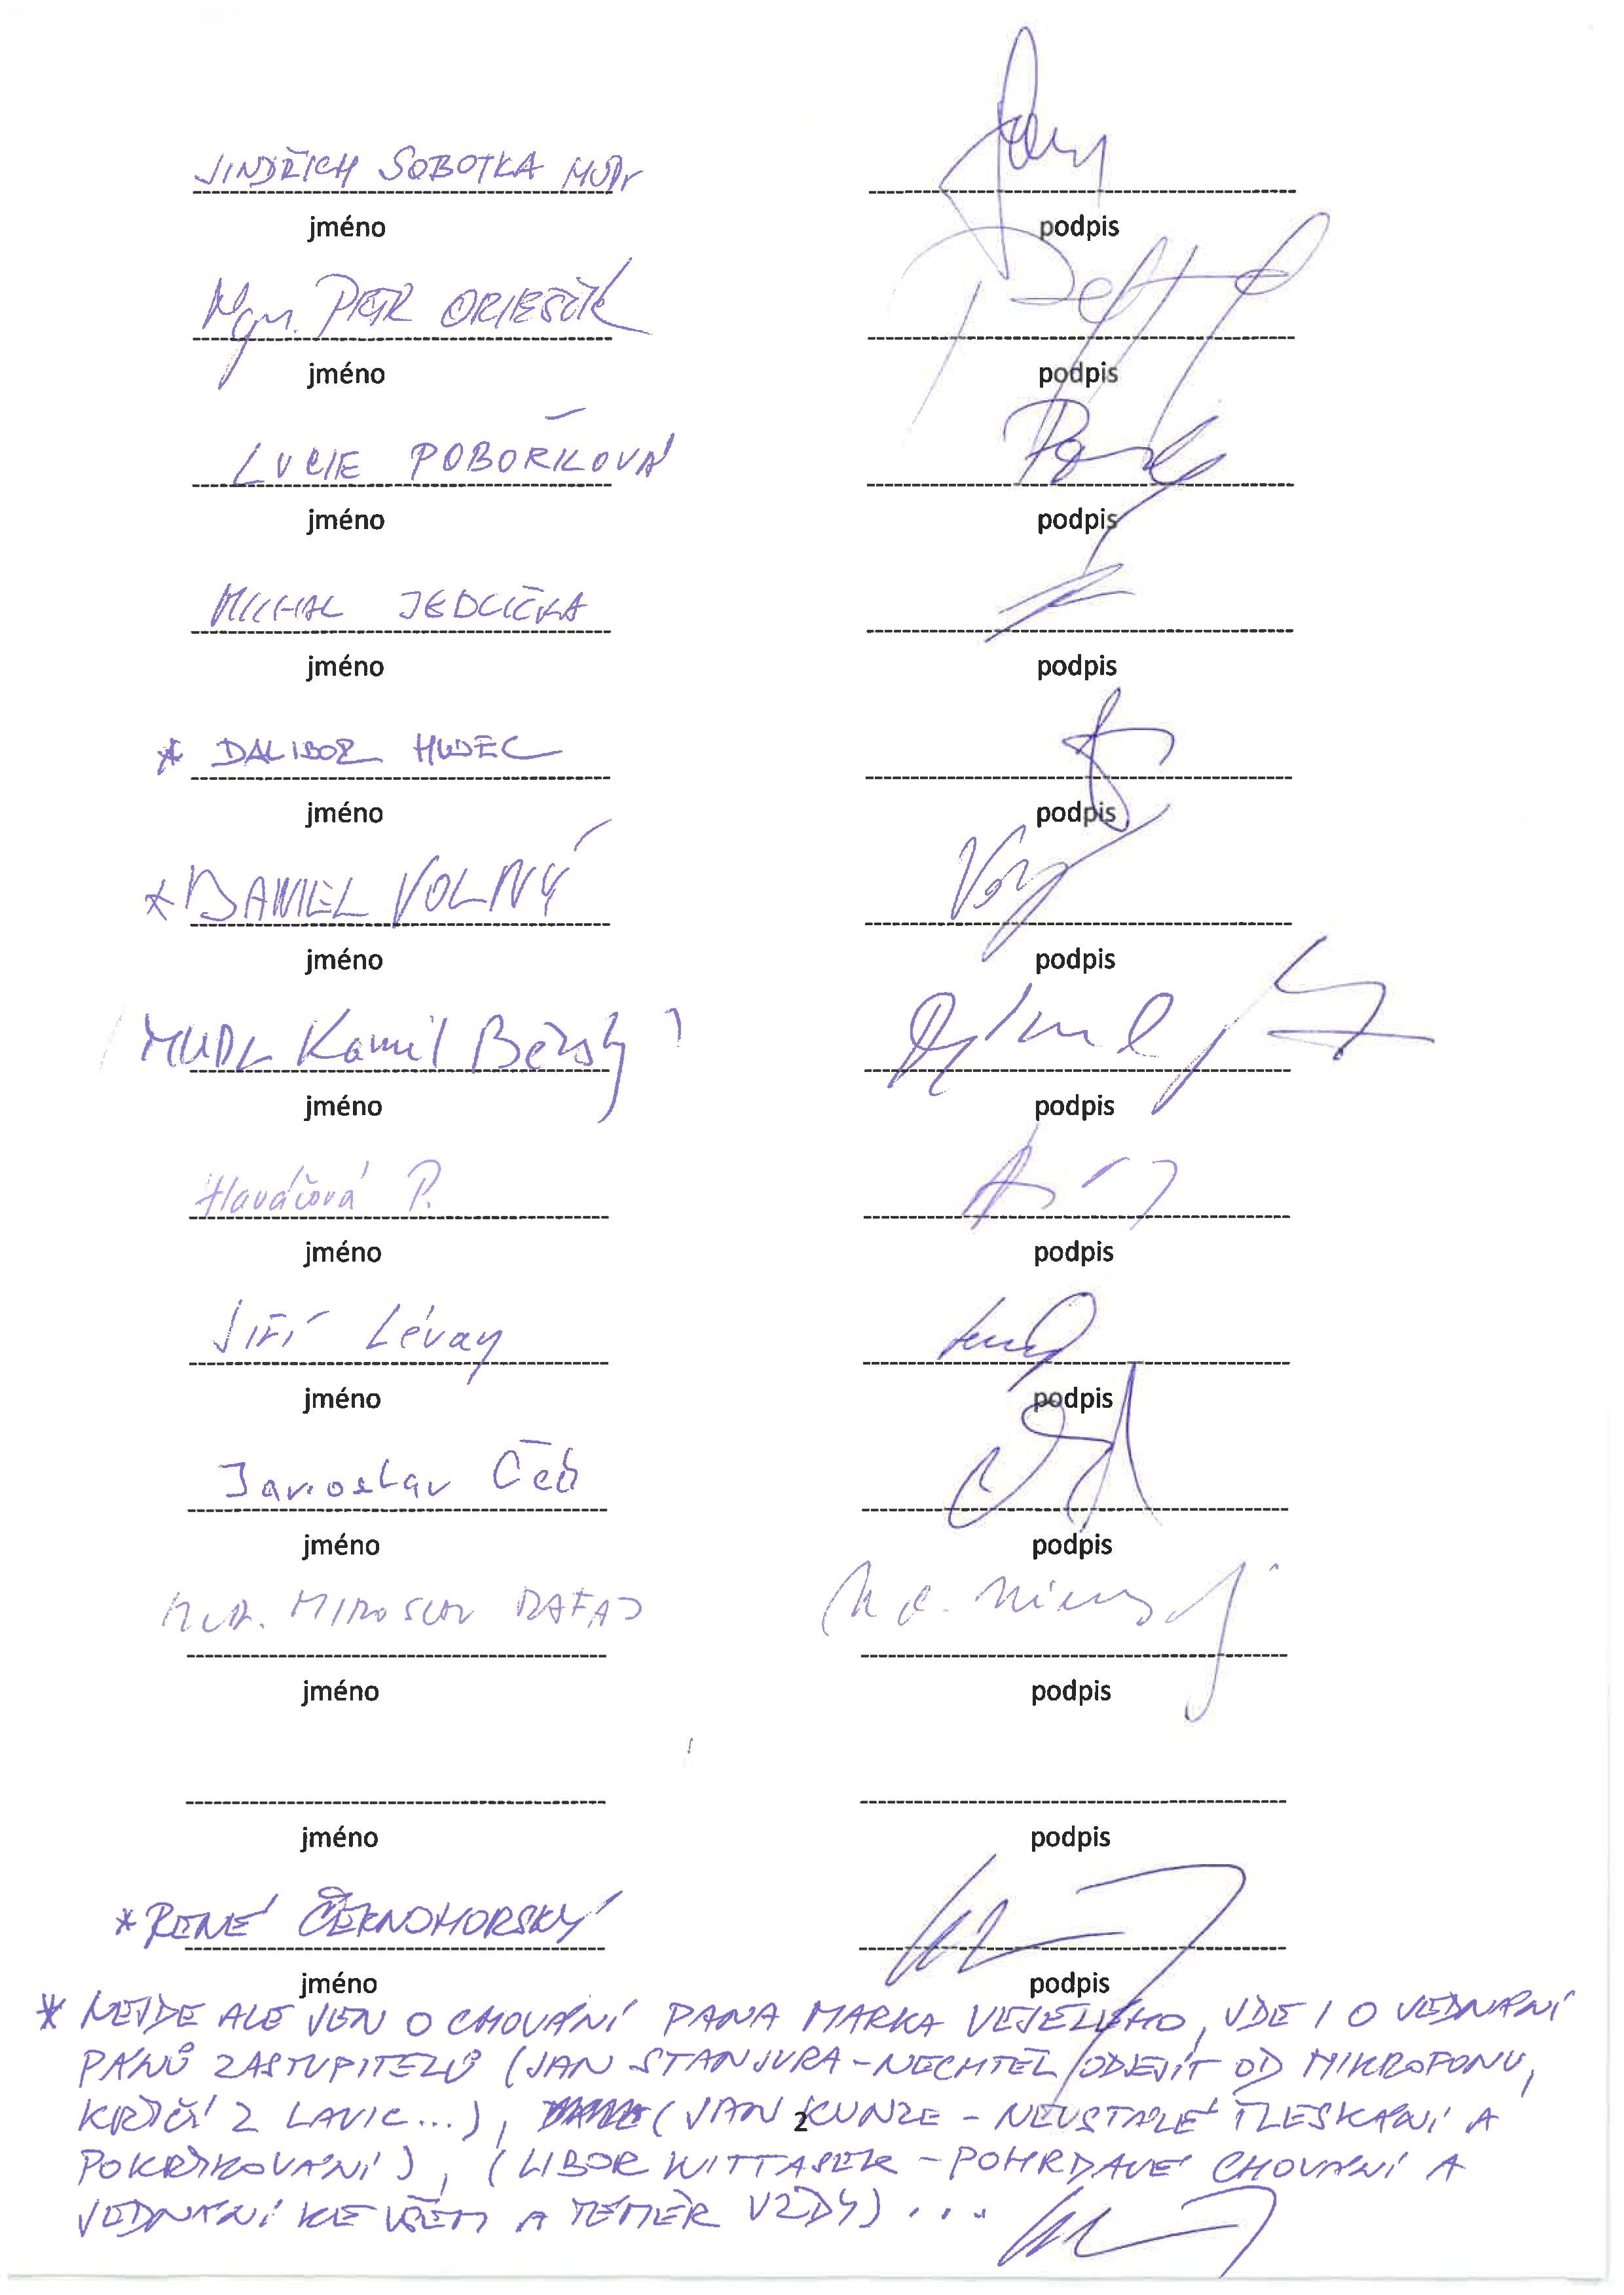 JINDŘICH SOBOTKA MUDr
jméno podpis
Mgr. PETR ORIEŠČÍK
jméno podpis
LUCIE POBOŘILOVÁ
jméno podpis
MICHAL JEDLIČKA
jméno podpis
* DALIBOR HUDEC
jméno podpis
* DANIEL VOLNÝ
jméno podpis
MUDr Kamil
jméno podpis
Hlaváčová P.
jméno podpis
Jiří Lévay
jméno podpis
Jaroslav Čech
jméno podpis
MIROSLAV RAFAJ
jméno podpis
jméno podpis
* RENÉ ČERNOHORSKÝ
jméno podpis
* NEJDE ALE JEN O CHOVÁNÍ PANA MARKA VESELÉHO, JDE I O JEDNÁNÍ
PÁNŮ ZASTUPITELŮ (JAN STANJURA - NECHTĚL ODEJÍT OD MIKROFONU,
KŘIČÍ Z LAVIC...), (JAN KUNZE - NEUSTÁLÉ TLESKÁNÍ A
2
POKŘIKOVÁNÍ), (LIBOR WITTASSEK - POHRDAVÉ CHOVÁNÍ A
JEDNÁNÍ KE VŠEM A TÉMĚR VŽDY) ...